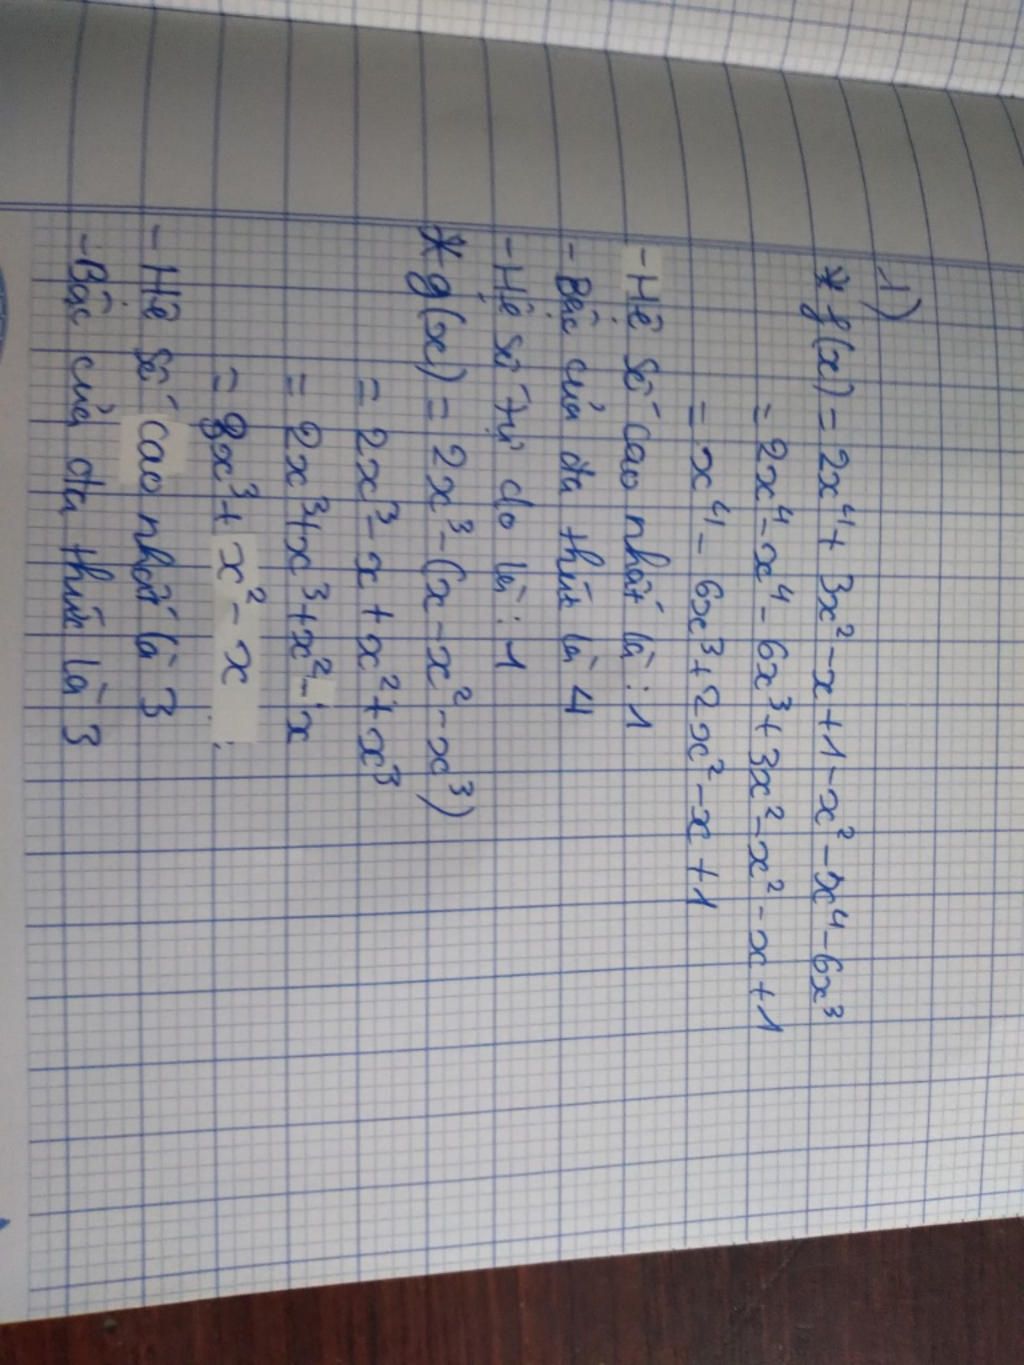 1)
* f(x) = 2x⁴ + 3x² - x + 1 - x² - x⁴ - 6x³
= 2x⁴ - x⁴ - 6x³ + 3x² - x² - x + 1
= x⁴ - 6x³ + 2x² - x + 1
- Hệ số cao nhất là : 1
- Bậc của đa thức là 4
- Hệ số tự do là : 1
* g(x) = 2x³ - (x - x² - x³)
= 2x³ - x + x² + x³
= 2x³ + x³ + x² - x
= 3x³ + x² - x
- Hệ số cao nhất là 3
- Bậc của đa thức là 3